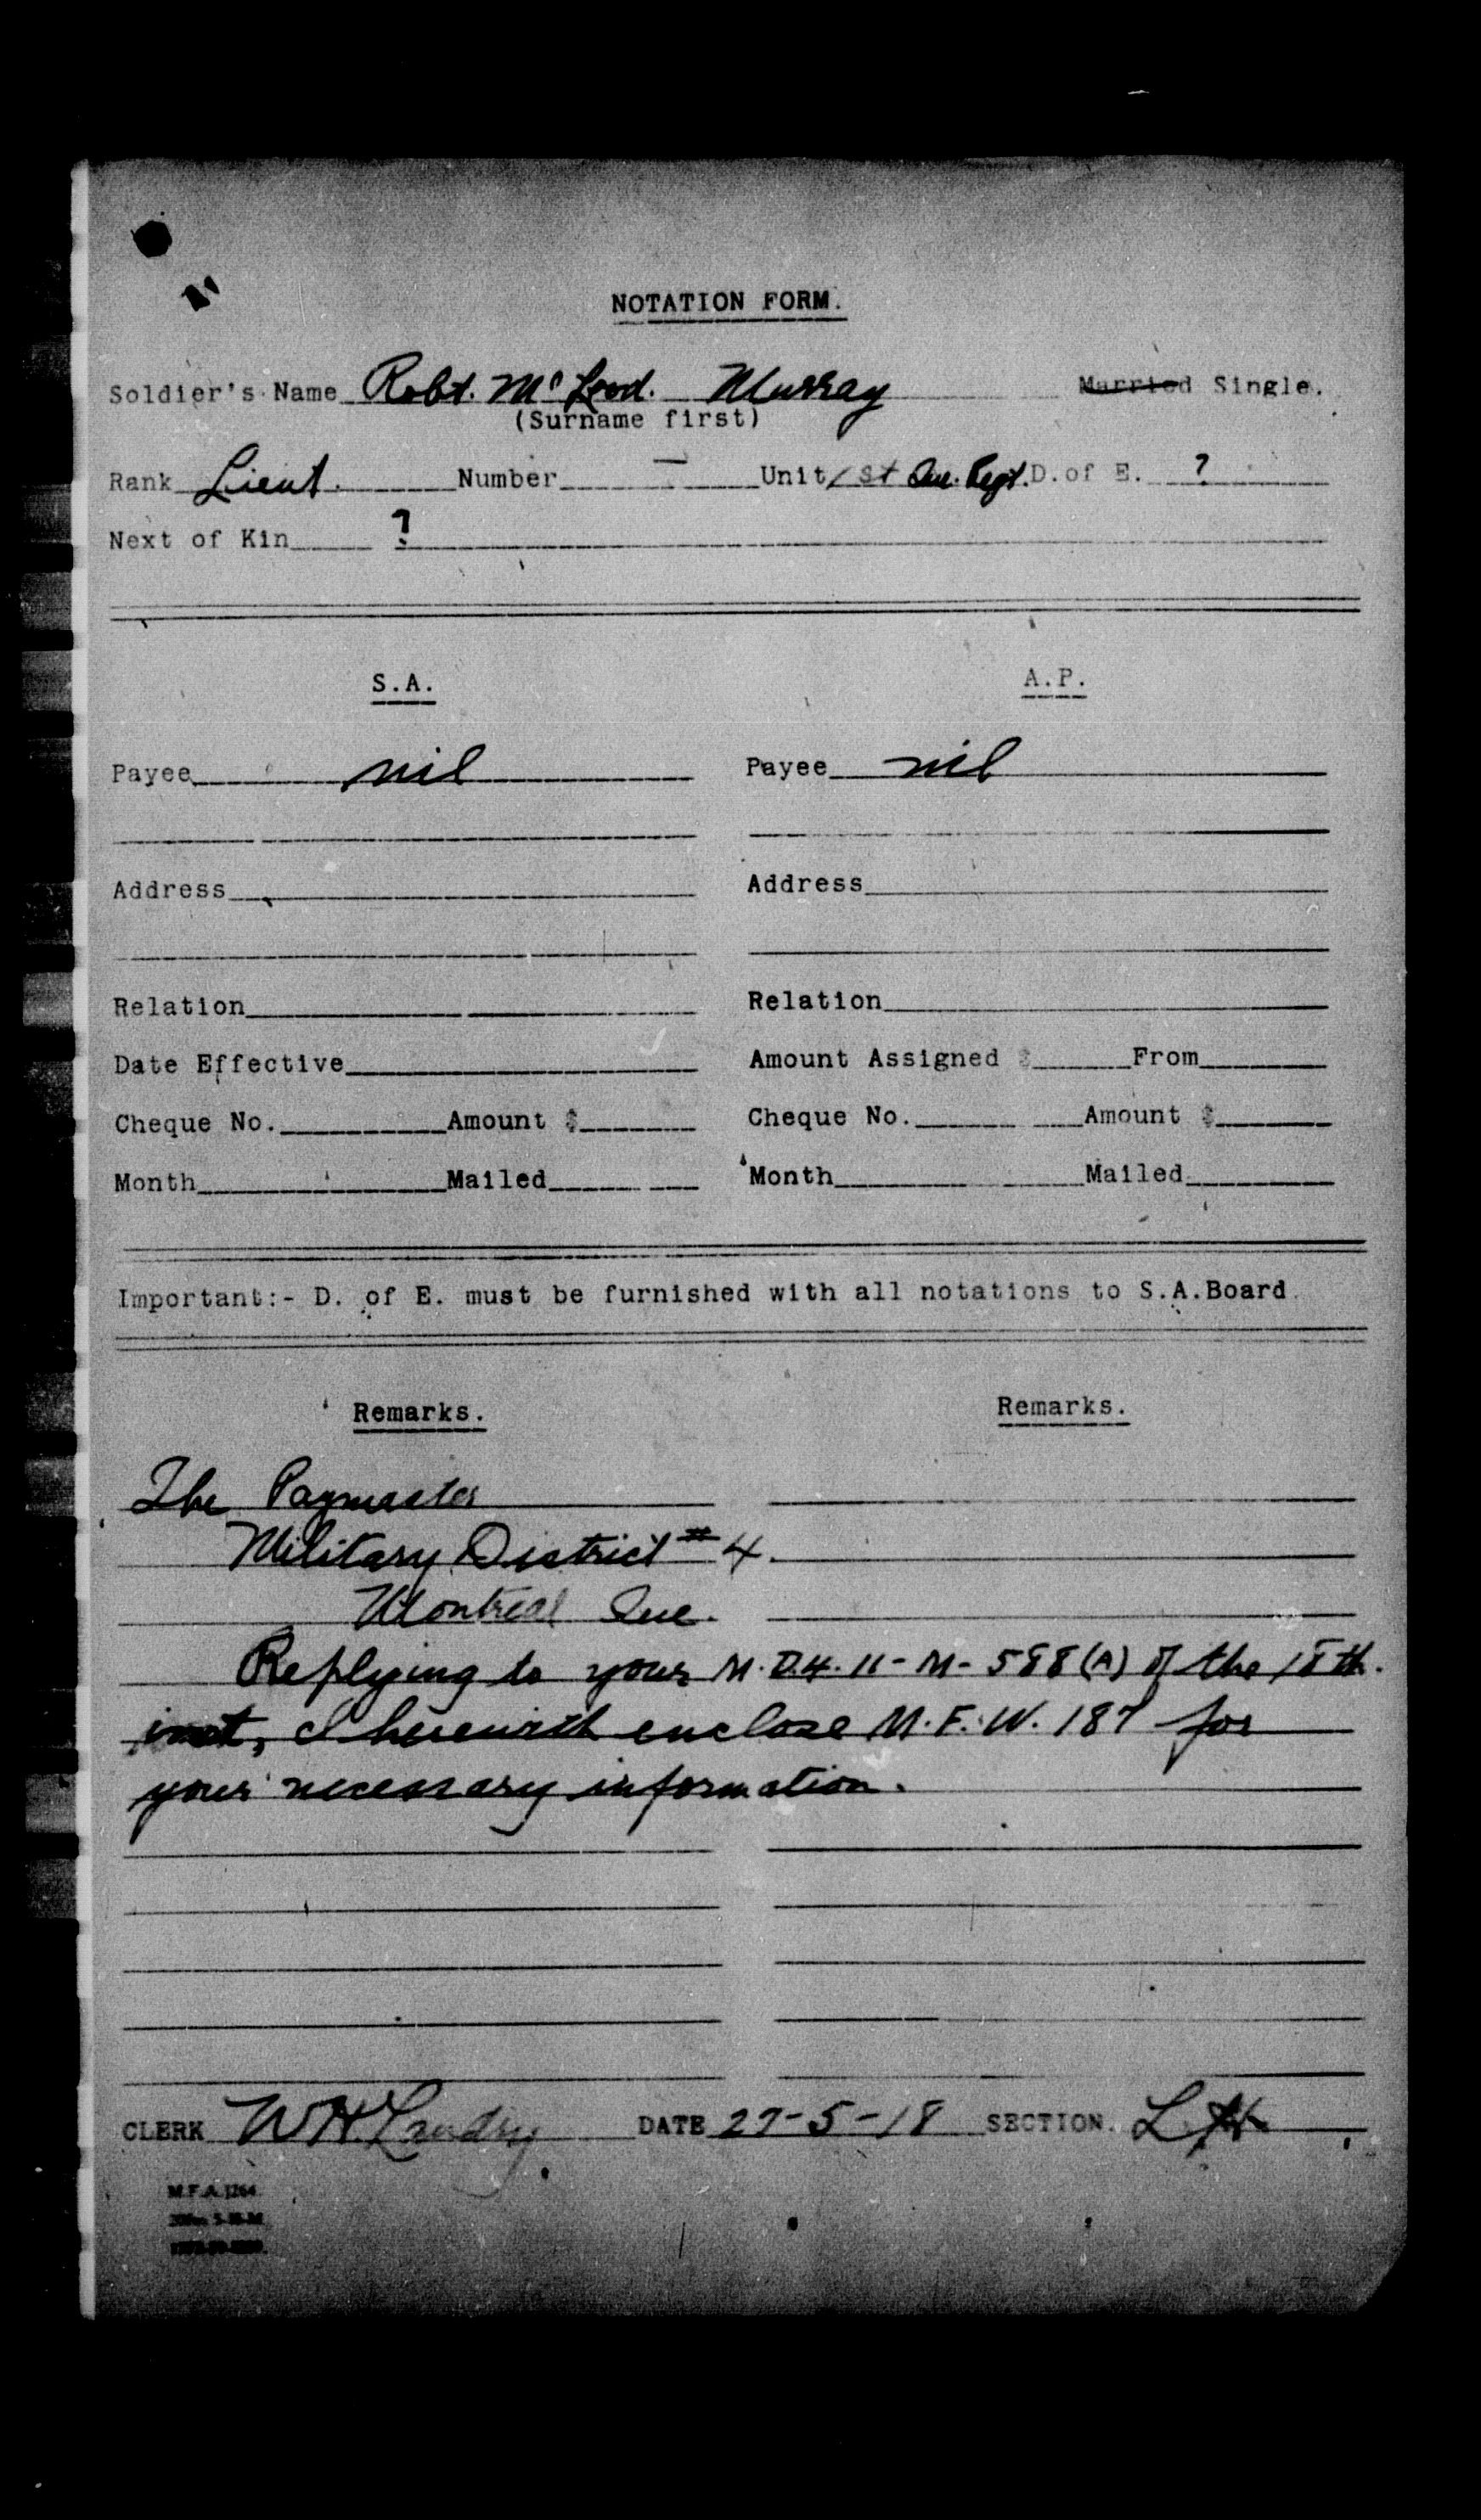 NOTATION FORM.
Soldier's Name Robt. McLeod. Murray Married Single.
(Surname first)
Rank Lieut. Number — Unit 1st Que. Regt. D. of E. ?
Next of Kin ?
S.A. A.P.
Payee nil Payee nil
Address Address
Relation Relation
Date Effective Amount Assigned $ From
Cheque No. Amount $ Cheque No. Amount $
Month Mailed Month Mailed
Important:- D. of E. must be furnished with all notations to S.A.Board.
Remarks. Remarks.
The Paymaster
Military District #4.
Montreal Que.
Replying to your M.D.4. 11-M-588(A) of the 18th.
inst, I herewith enclose M.F.W. 187 for
your necessary information.
CLERK WHLandry DATE 27-5-18 SECTION.
M.F.A. 1264